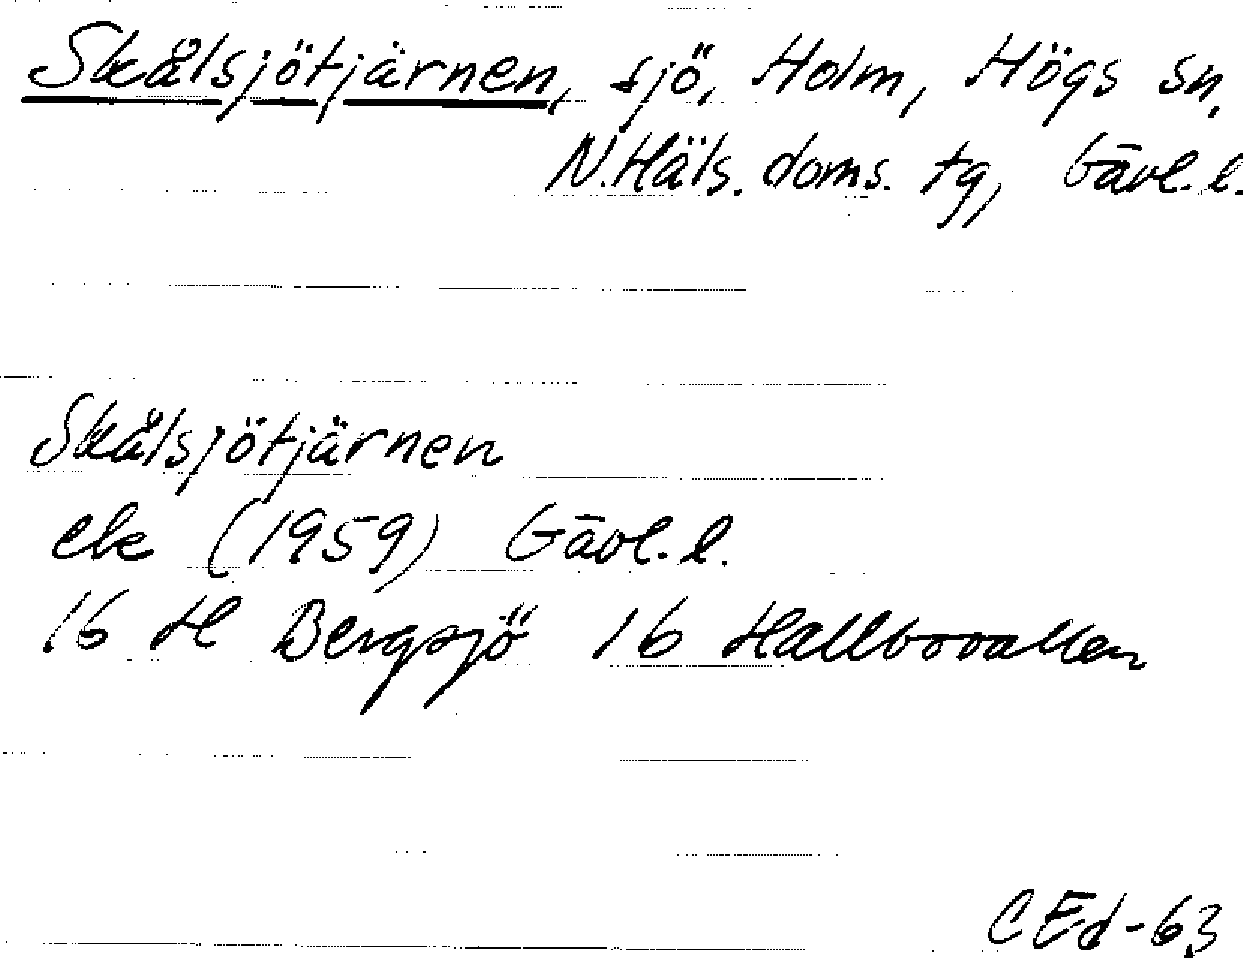 Skålsjötjärnen, sjö, Holm, Högs sn,
N.Häls. doms. tg, Gävl. l.
Skålsjötjärnen
ek (1959) Gävl. l.
16 H Bergsjö 16 Hallbovallen
CEd-63